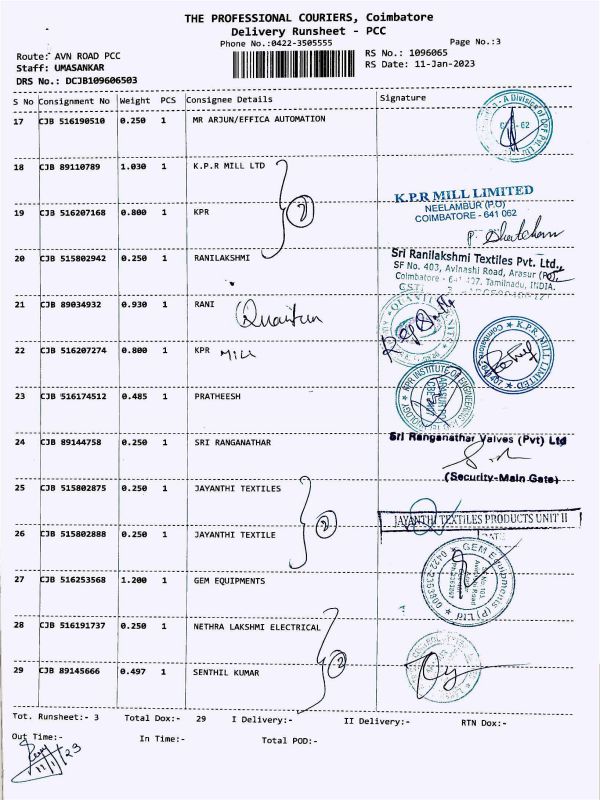 THE PROFESSIONAL COURIERS, Coimbatore
Delivery Runsheet - PCC
Phone No.:0422-3505555
Page No.:3
Route: AVN ROAD PCC
RS No.: 1096065
Staff: UMASANKAR
RS Date: 11-Jan-2023
DRS No.: DCJB109606503
S No Consignment No Weight PCS Consignee Details Signature
17 CJB 516190510 0.250 1 MR ARJUN/EFFICA AUTOMATION
18 CJB 89110789 1.030 1 K.P.R MILL LTD
K.P.R MILL LIMITED
NEELAMBUR (P.O)
COIMBATORE - 641 062
19 CJB 516207168 0.800 1 KPR
2
20 CJB 515802942 0.250 1 RANILAKSHMI
Sri Ranilakshmi Textiles Pvt. Ltd.,
SF No. 403, Avinashi Road, Arasur (Po),
Tamilnadu, INDIA.
21 CJB 89034932 0.930 1 RANI
22 CJB 516207274 0.800 1 KPR Mill
K.P.R. MILL LIMITED
23 CJB 516174512 0.485 1 PRATHEESH
KPR INSTITUTE OF ENGINEERING
24 CJB 89144758 0.250 1 SRI RANGANATHAR
Sri Ranganathar Valves (Pvt) Ltd
(Security-Main Gate)
25 CJB 515802875 0.250 1 JAYANTHI TEXTILES
2
JAYANTHI TEXTILES PRODUCTS UNIT II
26 CJB 515802888 0.250 1 JAYANTHI TEXTILE
27 CJB 516253568 1.200 1 GEM EQUIPMENTS
GEM Equipments (P) Ltd
28 CJB 516191737 0.250 1 NETHRA LAKSHMI ELECTRICAL
2
29 CJB 89145666 0.497 1 SENTHIL KUMAR
Tot. Runsheet:- 3 Total Dox:- 29 I Delivery:- II Delivery:- RTN Dox:-
Out Time:- In Time:- Total POD:-
11/1/23